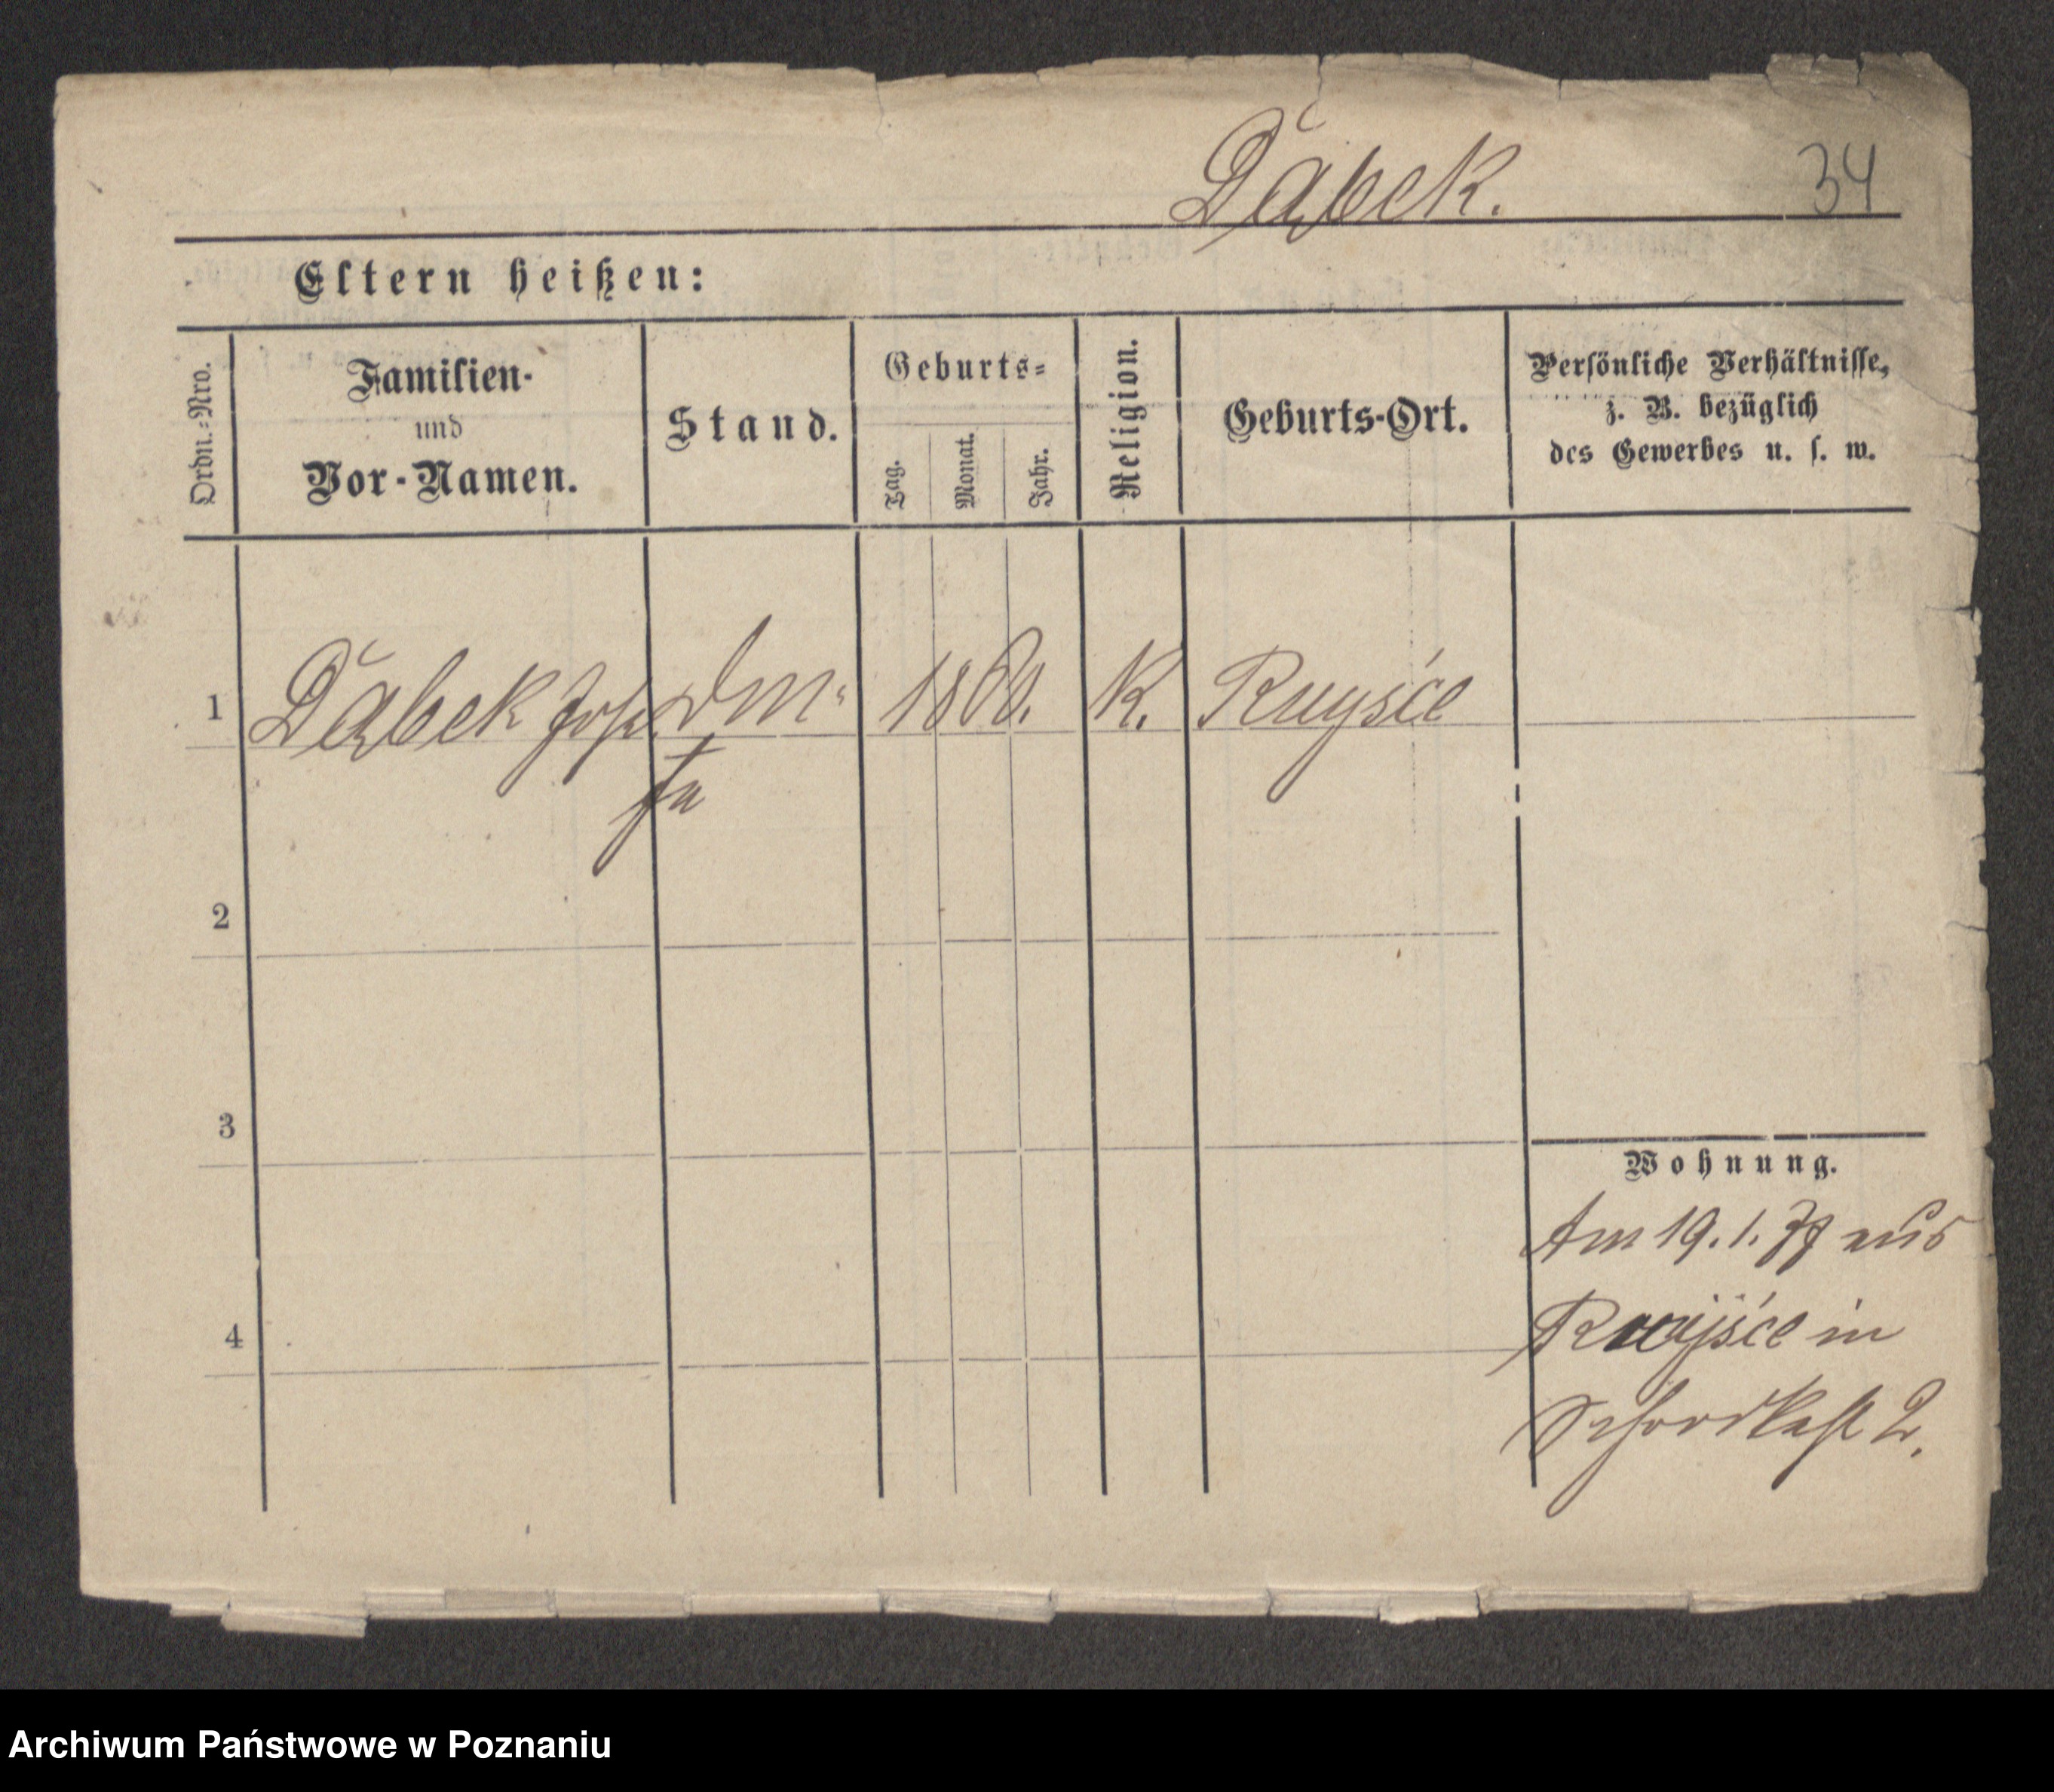 Dąbek.
34
Eltern heißen:
Ordn.-Nro.
Familien-
und
Vor-Namen.
Stand.
Geburts-
Tag.
Monat.
Jahr.
Religion.
Geburts-Ort.
Persönliche Verhältnisse,
z. B. bezüglich
des Gewerbes u. s. w.
1 Dąbek Jos. 1860. K. Ruyście
2
3
4
Wohnung.
Am 19.1.77 aus
Ruyście in
2.
Archiwum Państwowe w Poznaniu